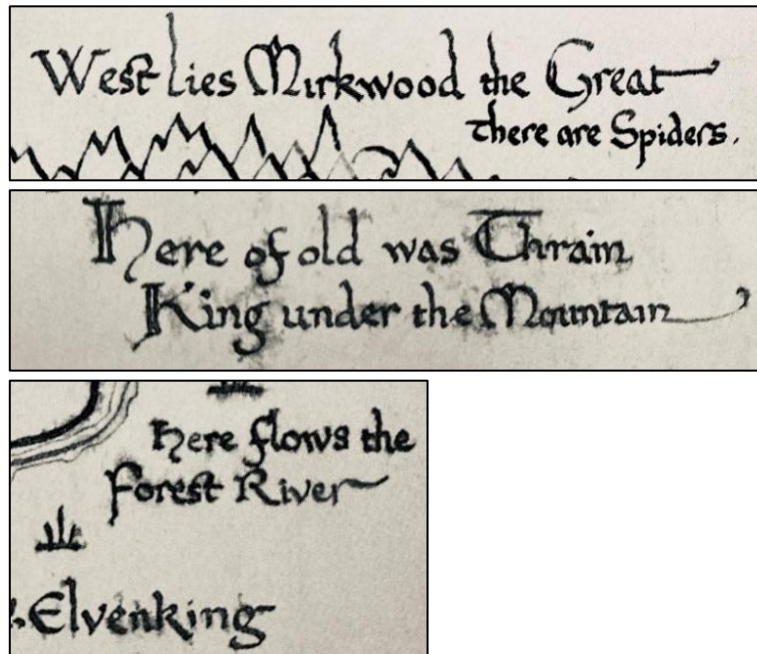 West lies Mirkwood the Great
there are Spiders.
Here of old was Thrain
King under the Mountain
Here flows the
Forest River
Elvenking